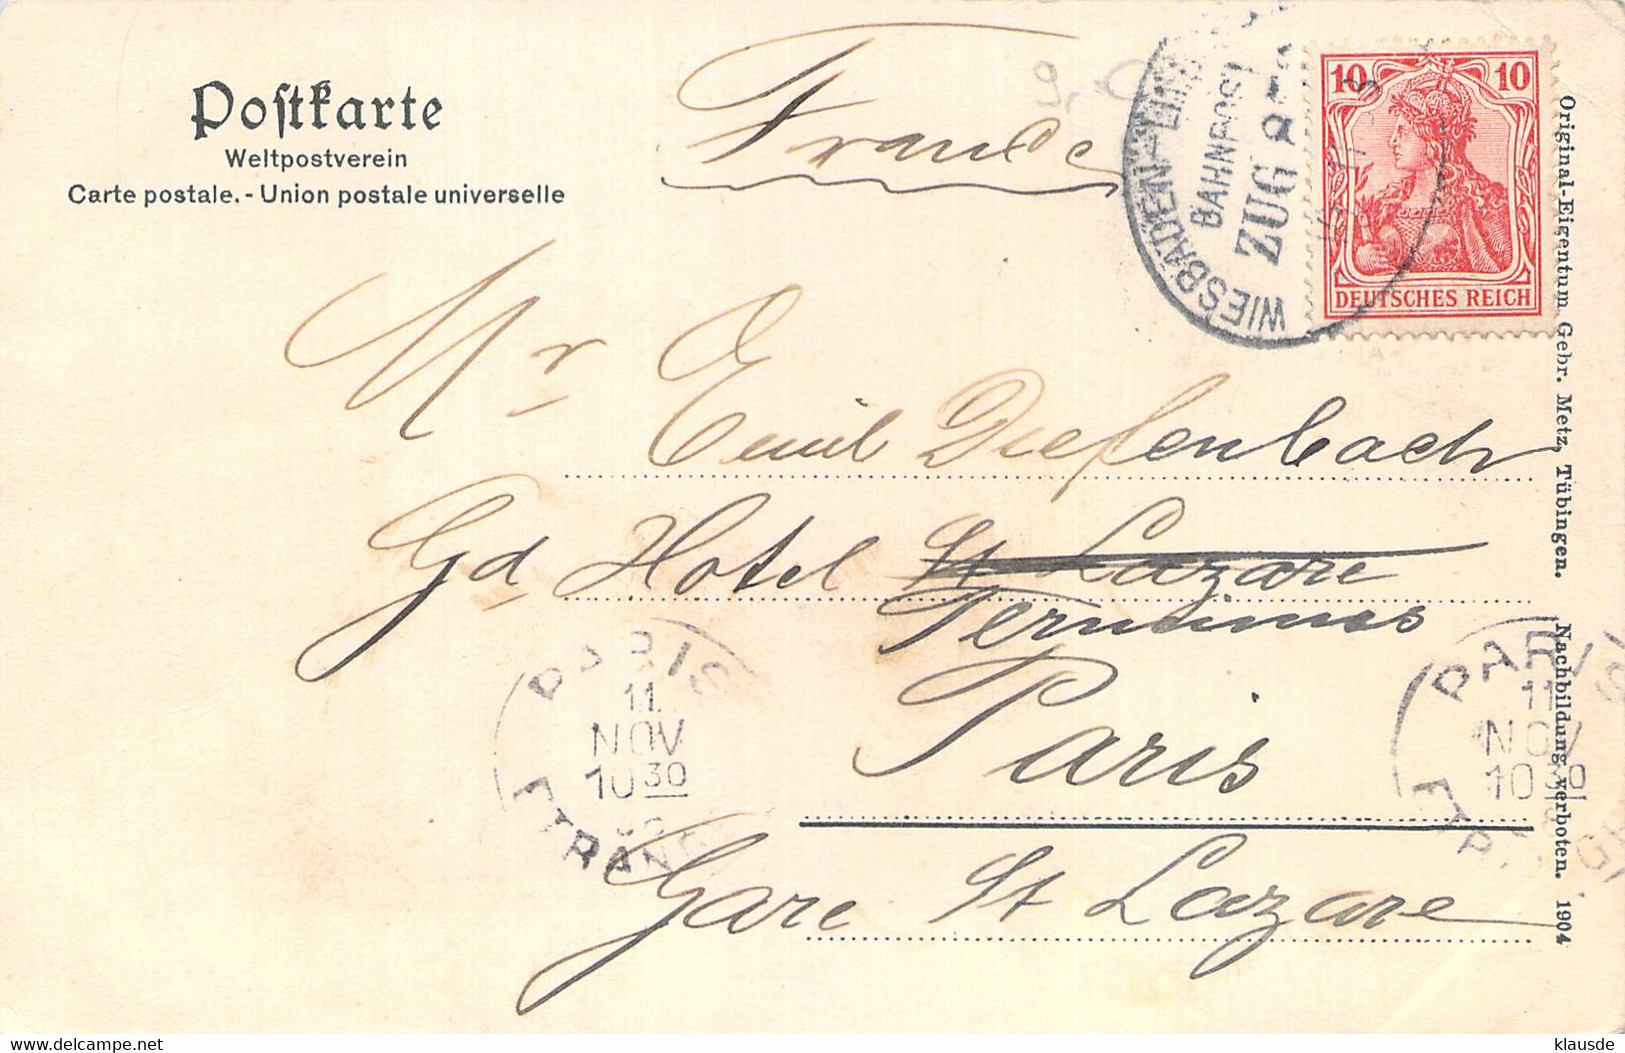 Postkarte
Weltpostverein
Carte postale. - Union postale universelle
France
WIESBADEN
BAHNPOST
ZUG
10 10
DEUTSCHES REICH
Mr Emil Diefenbach
Gd Hotel St Lazare
Terminus
Paris
Gare St Lazare
PARIS
11
NOV
10 30
ETRANG
PARIS
11
NOV
10 30
Original-Eigentum Gebr. Metz, Tübingen. Nachbildung verboten. 1904
klausde